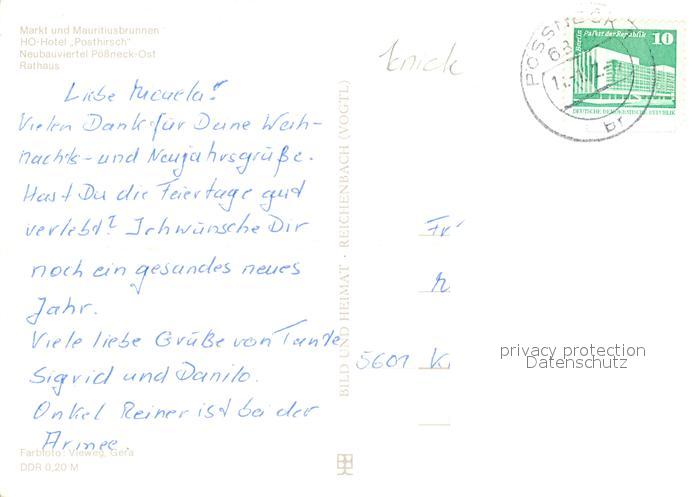 Markt und Mauritiusbrunnen
HO-Hotel „Posthirsch"
Neubauviertel Pößneck-Ost
Rathaus
Knick
Liebe Micaela!
Vielen Dank für Deine Weih-
nachts- und Neujahrsgrüße.
Hast Du die Feiertage gut
verlebt? Ich wünsche Dir
noch ein gesundes neues
Jahr.
Viele liebe Grüße von Tante
Sigrid und Danilo.
Onkel Reiner ist bei der
Armee.
Farbfoto: Vieweg, Gera
DDR 0,20 M
BILD UND HEIMAT · REICHENBACH (VOGTL)
PÖSSNECK 1
68
br
Berlin Palast der Republik 10
DEUTSCHE DEMOKRATISCHE REPUBLIK
Fr
5601 K
privacy protection
Datenschutz